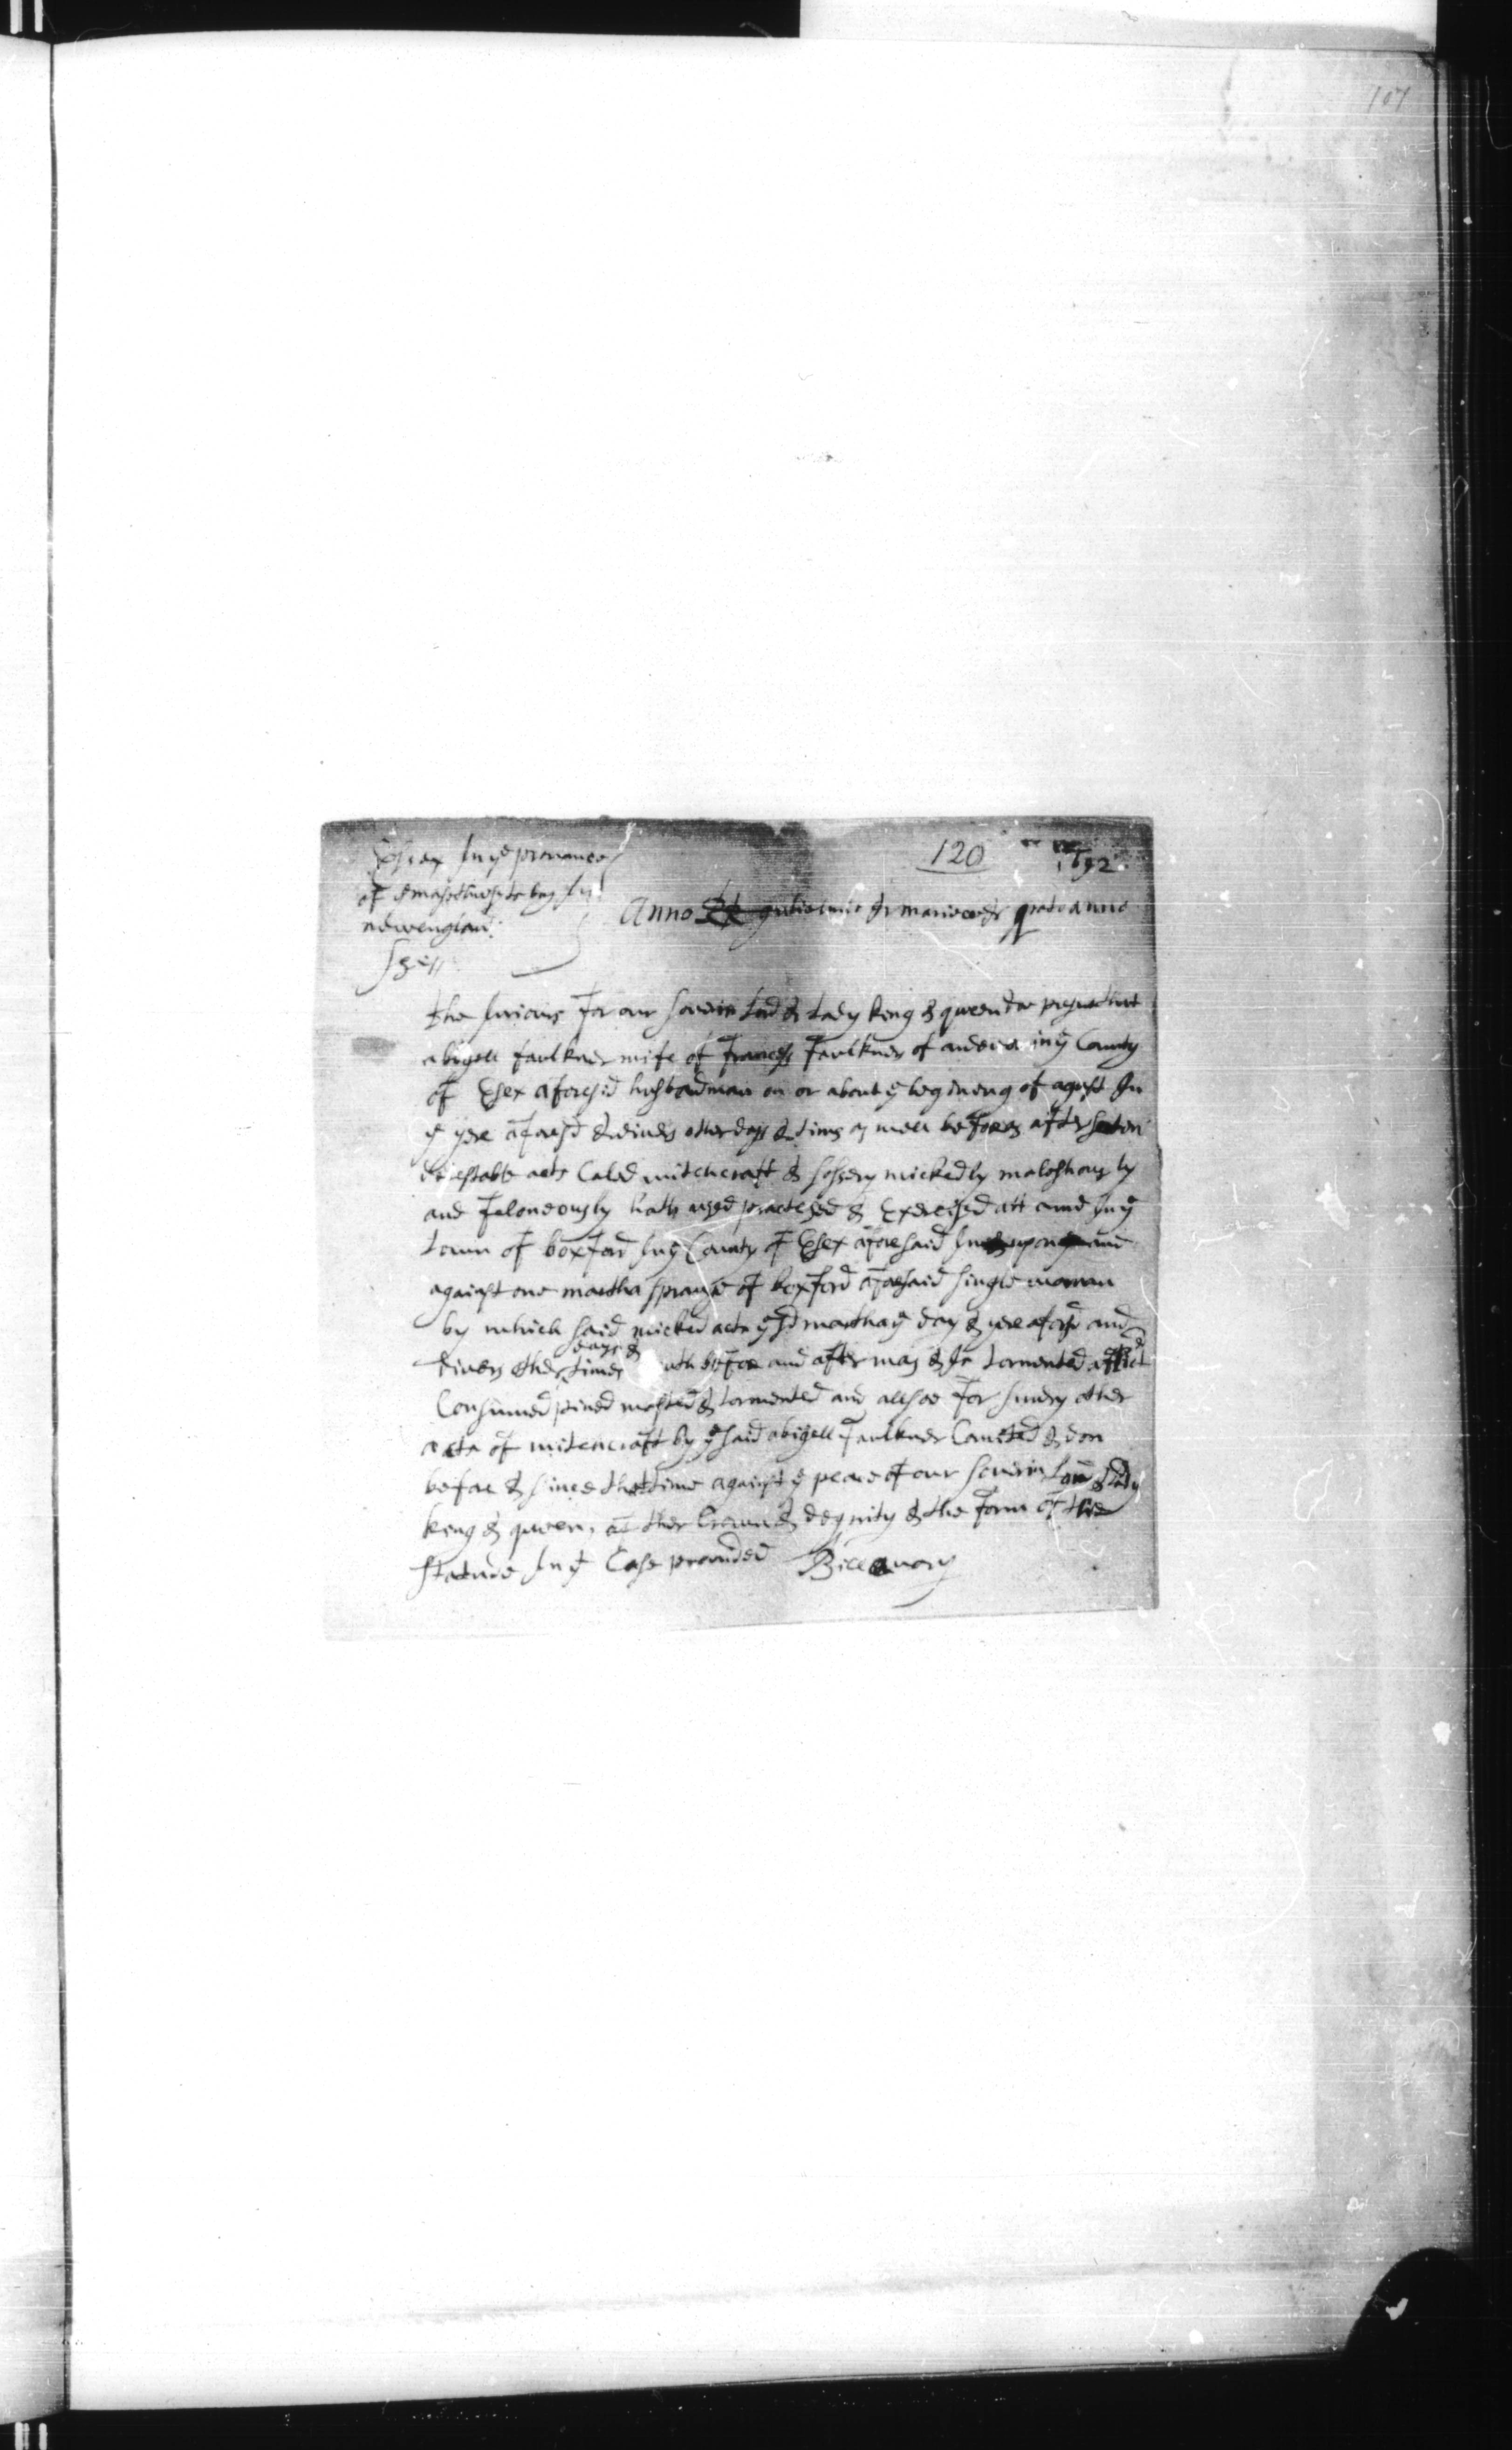 107
Essex In yͤ prouance
of yͤ masethusets bay In
ndwenglan:
ss
120
1692
anno RR gulielmie & marie &c quarto anno
the Juriours for our Souerin Lord & Lady king & queen doe present that
abigell faulkner wife of francis faulkner of andeuer in yͤ County
of Esex aforesid husbandman on or about yͤ begineng of agust In
yͤ yere aforesd & diuers other days & tims as well before as after serten
detestable acts Caled witchcraft & sossery wickedly maleshously
and feloneously hath vsed practesed & Exercised att and In yͤ
town of boxford In yͤ County of Esex aforesaid In upon and
against one martha sprague of boxford aforesaid single woman
by which said wicked acts yͤ sd martha yͤ day & yere aforsd and
diuers other days & times both before and after was & Is tormented afflicted
Consumed pined wasted & tormented and allsoe for sundry other
acts of witchcraft by yͤ said abigell faulkner Comited & don
before & since that time against yͤ peace of our Souerin Lord & Lady
king & queen, ther Crown & degnity & the form of the
statute In yͤ Case prouided Billa vary